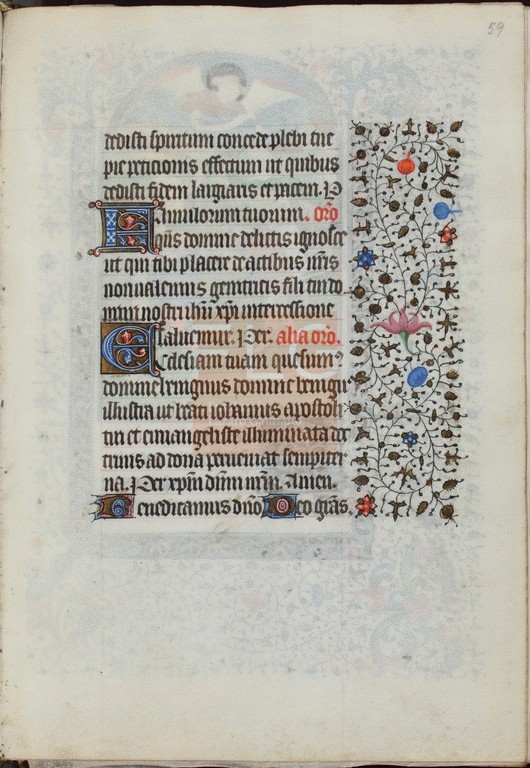 59
dedisti spiritum concede plebi tue
pie peticionis effectum ut quibus
dedisti fidem largiaris et pacem. P
Famulorum tuorum. oro
qus domine delictis ignosce
ut qui tibi placere de actibus nris
non valemus genitricis filii tui do
mini nostri ihu xpi intercessione
salvemur. Per. alia oro.
Ecclesiam tuam quesum
domine benignus
illustra ut beati iohannis apostoli
tui et euuangeliste illuminata doc
trinis ad dona perveniat sempiter
na. Per xpm dnm nrm. Amen.
Benedicamus dno Deo gras.